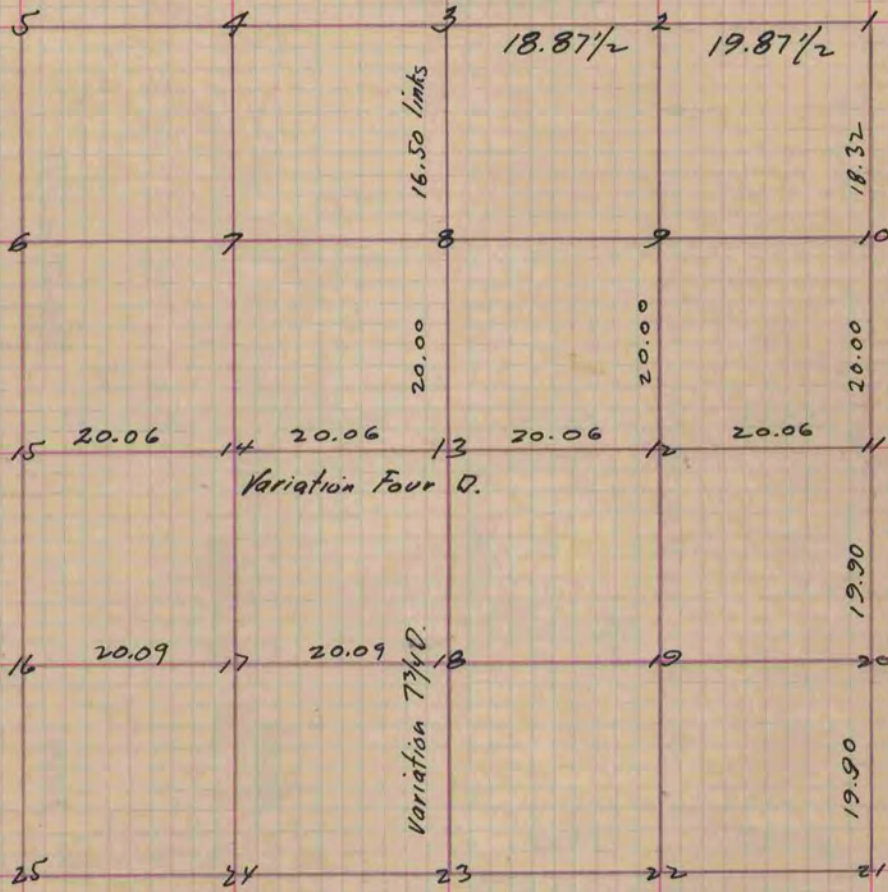 5 4 3 2 1
18.87½ 19.87½
16.50 links
18.32
6 7 8 9 10
20.00
20.00
20.00
20.06 20.06 20.06 20.06
15 14 13 12 11
Variation Four D.
19.90
20.09 20.09
16 17 18 19 20
Variation 7¾ D.
19.90
25 24 23 22 21